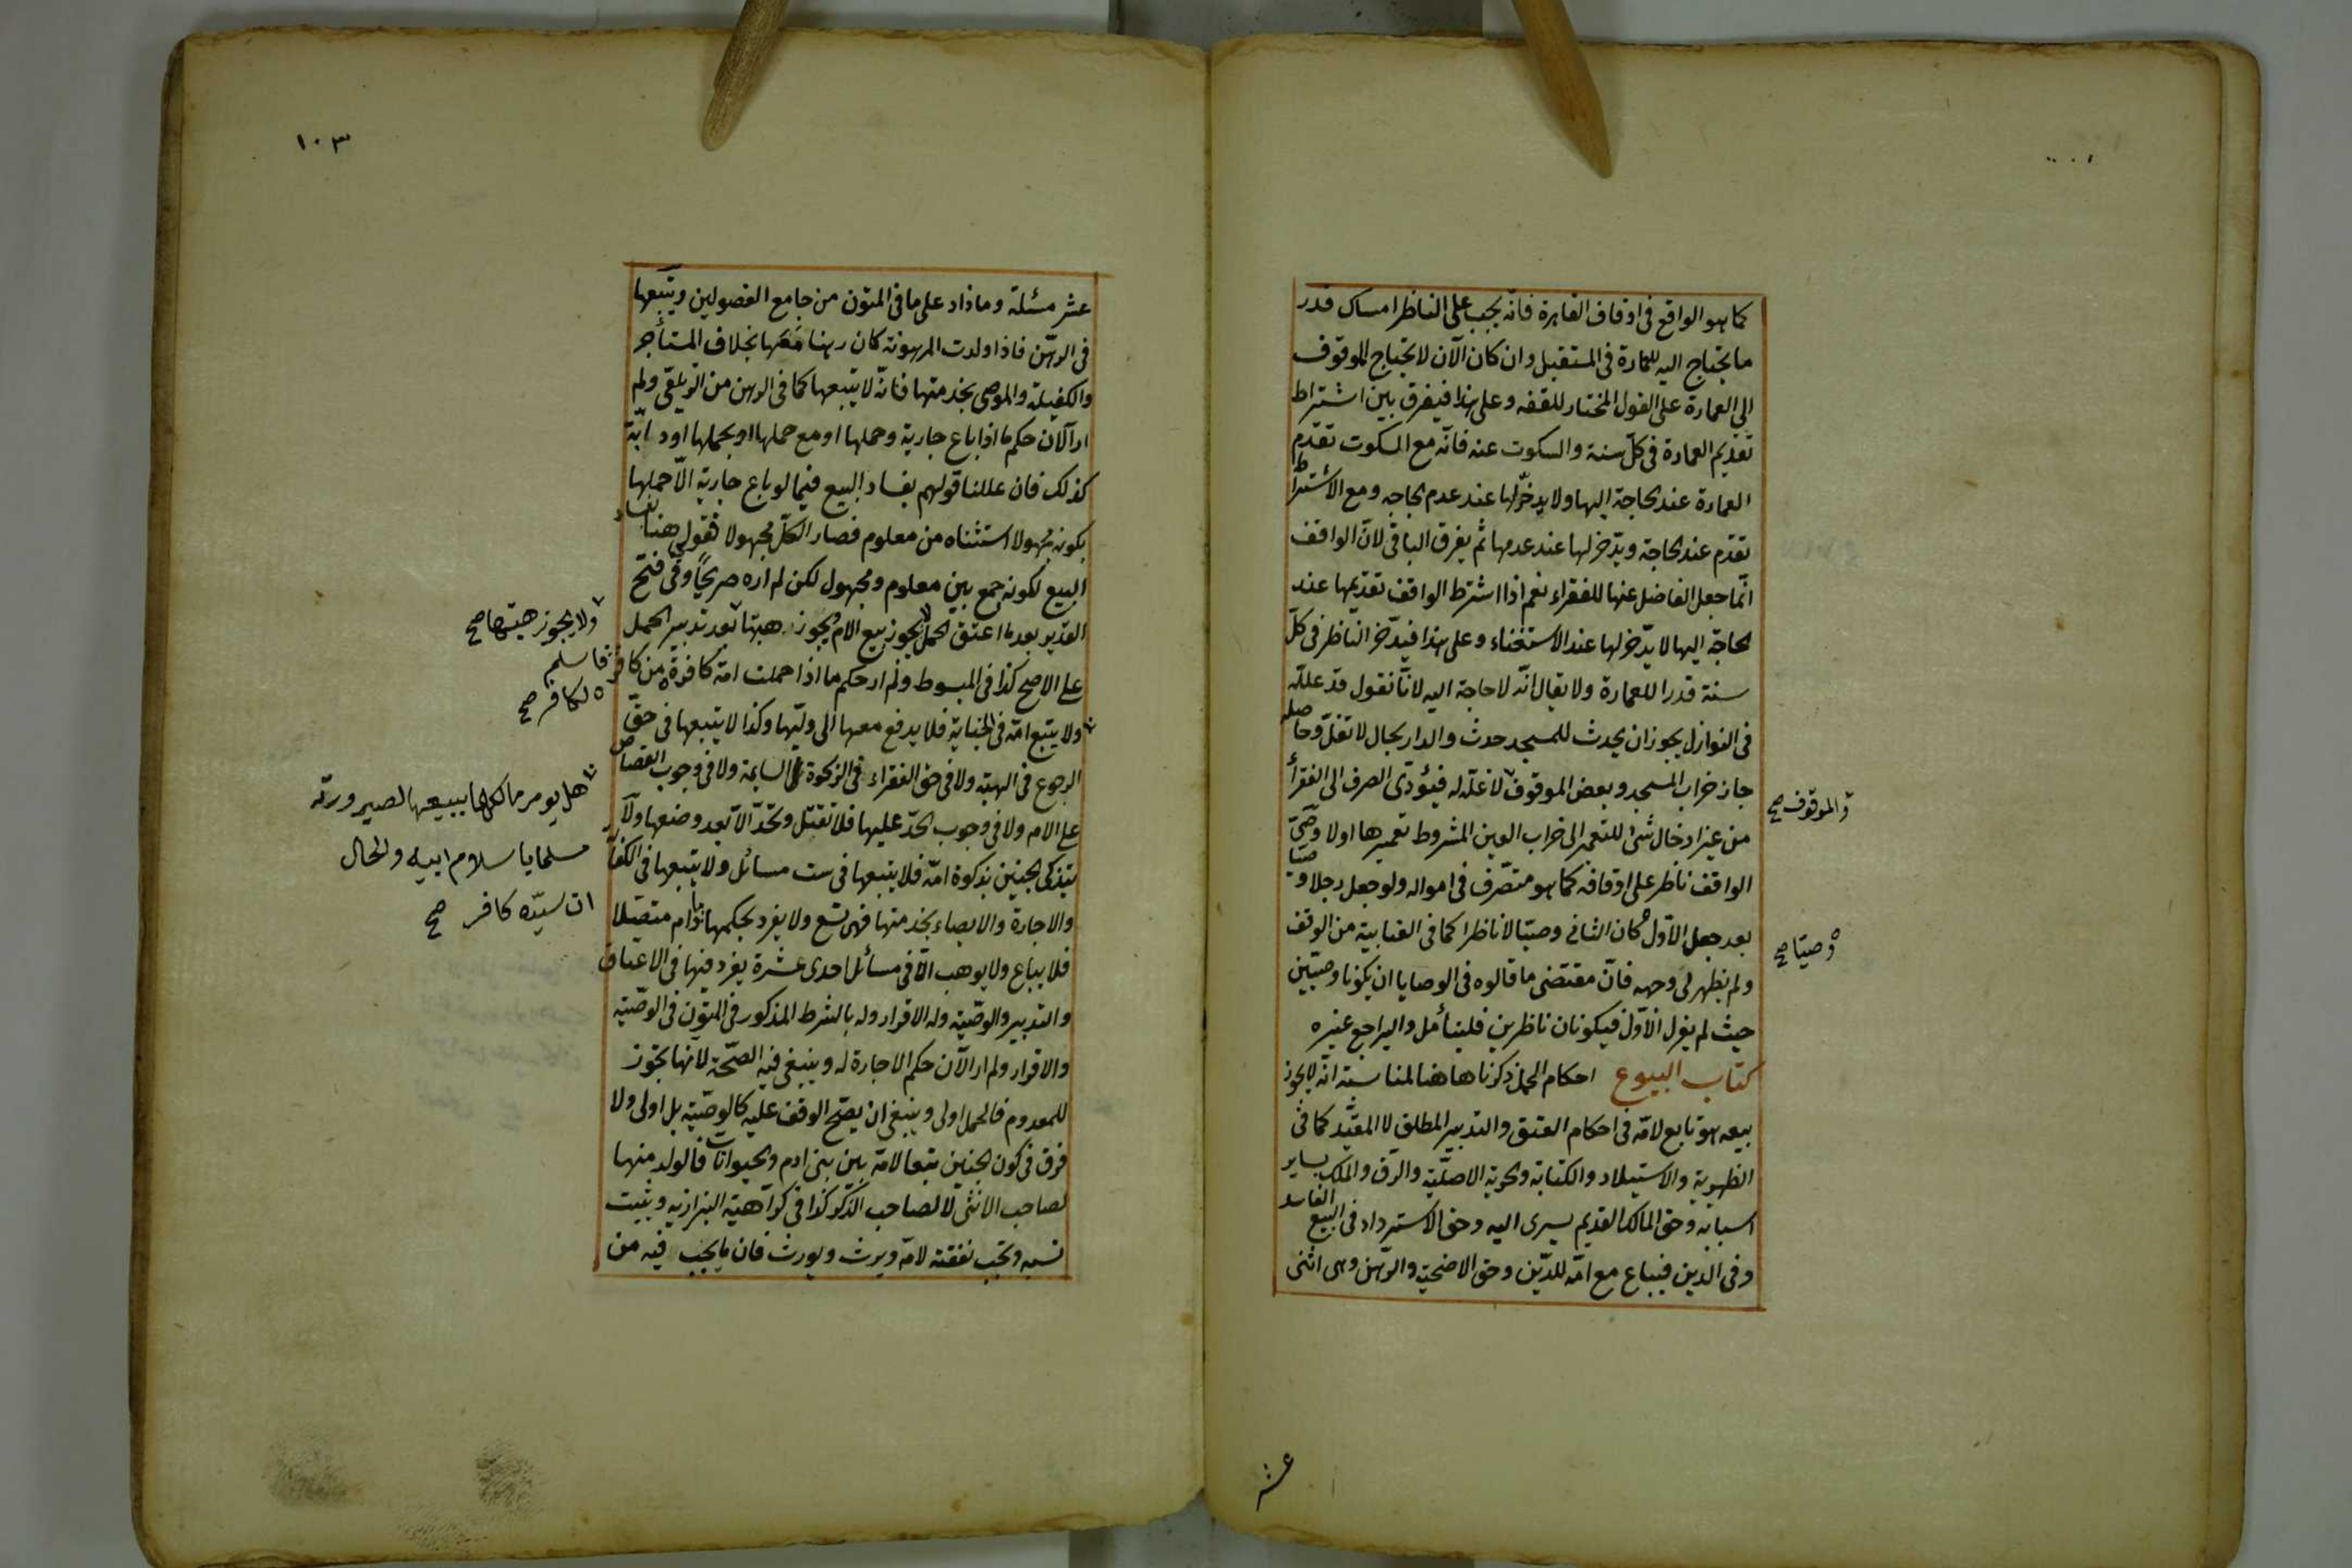 كما هو الواقع في اوقاف القاهرة فانّه يجب على الناظر امساك قدر
ما يحتاج اليه للعمارة في المستقبل وان كان الآن لا يحتاج الموقوف
الى العمارة على القول المختار للفقه وعلى هذا فيفرق بين اشتراط
تقديم العمارة في كلّ سنة والسكوت عنه فانّه مع السكوت تقدّم
العمارة عند الحاجة اليها ولا يدخّر لها عند عدم الحاجه ومع الاشتراط
تقدّم عند الحاجة ويدّخر لها عند عدمها ثم يفرق الباقي لانّ الواقف
انّما جعل الفاضل عنها للفقراء نعم اذا اشترط الواقف تقديمها عند
الحاجة اليها لا يدّخر لها عند الاستغناء وعلى هذا فيدّخر الناظر في كلّ
سنة قدرا للعمارة ولا يقال انّه لا حاجة اليه لانّا نقول قد علله
في النوازل بجواز ان يحدث للمسجد حدث والدار بحال لا تغلّ وحاصله
جاز خراب المسجد وبعض الموقوف لا غلّة له فيؤدّى الصرف الى الفقراء
والموقوف صح
من غير ادخال شئ للتعمير الى خراب العين المشروط تعميرها اولا وصيّ
الواقف ناظر على اوقافه كما هو متصّرف في امواله ولو جعل رجلا وصيّا
بعد جعل الاوّل كان الثاني وصيّا لا ناظرا كما في العتابية من الوقف
وصيّا صح
ولم يظهر لى وجهه فانّ مقتضى ما قالوه في الوصايا ان يكونا وصيّين
حيث لم يعزل الاوّل فيكونان ناظرين فليتأمل وليراجع غيره
كتاب البيوع احكام الحمل ذكرناها هنا لمناسبته انّه لا يجوز
بيعه هو تابع لامّه في احكام العتق والتدبير المطلق لا المقيّد كما في
الظهيرية والاستيلاد والكتابة والحرية الاصليّة والرّق والملك بساير
اسبابه وحق المالك القديم يسرى اليه وحق الاسترداد في البيع الفاسد
وفي الدين فيباع مع امّه للدّين وحق الاضحيّة والرّهن وهى اثنى
عشر
١٠٣
عشر مسئلة وما زاد على ما في المتون من جامع الفصولين ويتبعها
في الرهّن فاذا ولدت المرهونة كان رهنا معها بخلاف المستأجر
والكفيلة والموصى بخدمتها فانّه لا يتبعها كما في الرهن من الزيلعّي ولم
ار الآن حكم ما اذا باع جارية وحملها او مع حملها او بحملها او دابّة
كذلك فان عللنا قولهم بفساد البيع فيما لو باع جارية الّا حملها
بكونه مجهولا استثناه من معلوم فصار الكلّ مجهولا نقول هنا بفساد
البيع لكونه جمع بين معلوم ومجهول لكن لم اره صريحًا وفي فتح
القدير بعد ما اعتق الحمل لا يجوز بيع الام ويجوز هبتها بعد تدبير الحمل
ولا يجوز هبتها صح
على الاصح كذا في المبسوط ولم ار حكم ما اذا حملت امة كافرة من كافر
فاسلم
لكافر صح
ولا يتبع امّه في الجناية فلا يدفع معها الى وليّها وكذا لا يتبعها في حقّ
الرجوع في الهبة ولا في حق الفقراء في الزكوة في السايمة ولا في وجوب القصاص
هل يومر مالكها ببيعها لصيرورته
مسلما باسلام ابيه والحال
ان سيّده كافر صح
على الام ولا في وجوب الحدّ عليها فلا تقتل وتحدّ الّا بعد وضعها ولا
يتذكى الجنين بذكوة امّه فلا يتبعها في ست مسائل ولا يتبعها في الكفالة
والاجارة والايصاء بخدمتها فهى تسع ولا يفرد بحكم ما دام متصّلا
فلا يباع ولا يوهب الّا في مسائل احدى عشرة يفرد فيها في الاعتاق
والتدبير والوصّية وله الاقرار وله بالشرط المذكور في المتون في الوصّية
والاقرار ولم ار الآن حكم الاجارة له وينبغي فيه الصّحّة لانها تجوز
للمعدوم فالحمل اولى وينبغى ان يصحّ الوقف عليه كالوصّية بل اولى ولا
فرق في كون الجنين تبعا لامّه بين بنى ادم والحيوانات فالولد منها
لصاحب الانثى لا لصاحب الذّكر كذا في كراهية البزازيه ويثبت
نسبه وتجب نفقته لامّه ويرث ويورث فان ما يجب فيه من